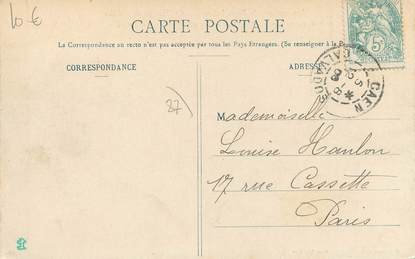 10 €
CARTE POSTALE
La Correspondance au recto n'est pas acceptée par tous les Pays Etrangers. (Se renseigner à la
CORRESPONDANCE
ADRESSE
CAEN
CALVADOS
5
37
Mademoiselle
Louise Hanlon
17 rue Cassette
Paris